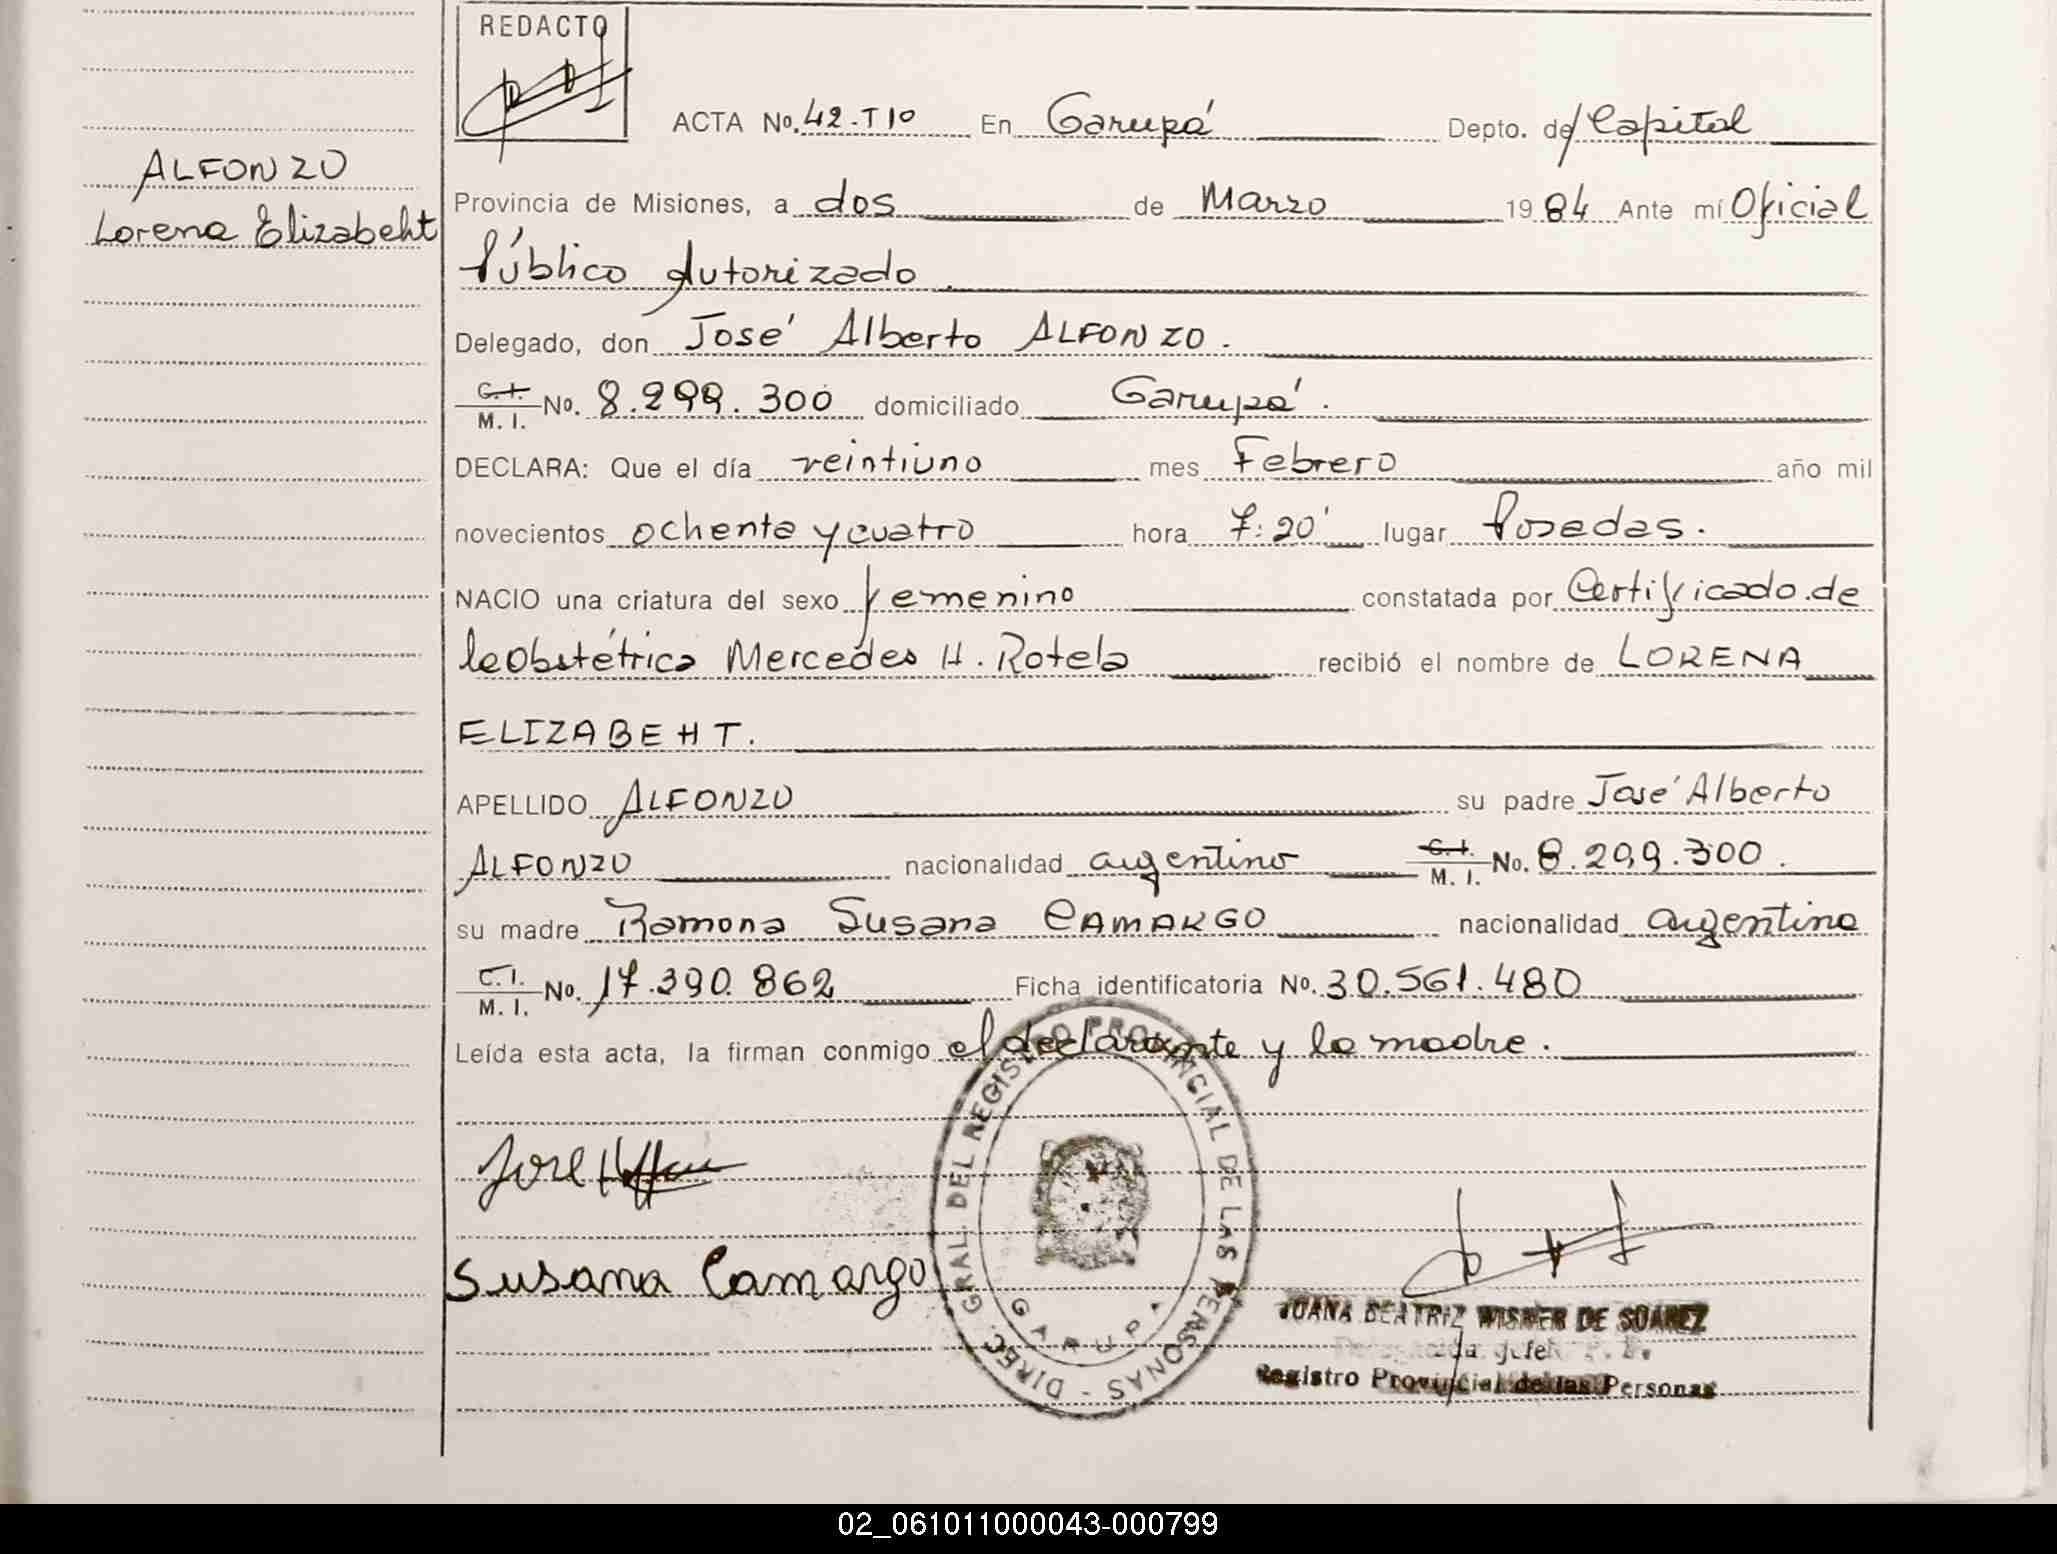 REDACTO
ACTA No. 42-T10 En Garupá Depto. de Capital
ALFONZO
Lorena Elizabeht
Provincia de Misiones, a dos de Marzo 1984 Ante mí Oficial
Público Autorizado
Delegado, don José Alberto ALFONZO.
C.I. M.I. No. 8.299.300 domiciliado Garupá.
DECLARA: Que el día veintiuno mes Febrero año mil
novecientos ochenta y cuatro hora 7:20' lugar Posadas.
NACIO una criatura del sexo femenino constatada por Certificado de
la Obstétrica Mercedes H. Rotela recibió el nombre de LORENA
ELIZABEHT.
APELLIDO ALFONZO su padre José Alberto
ALFONZO nacionalidad argentino C.I. M.I. No. 8.299.300.
su madre Ramona Susana CAMARGO nacionalidad argentina
C.I. M.I. No. 17.390.862 Ficha identificatoria No. 30.561.480
Leída esta acta, la firman conmigo el declarante y la madre.
DIREC. GRAL. DEL REGISTRO PROVINCIAL DE LAS PERSONAS -
GARUPA
José
Susana Camargo
JUANA BEATRIZ WISNER DE SOAREZ
Registro Provincial de las Personas
02_061011000043-000799